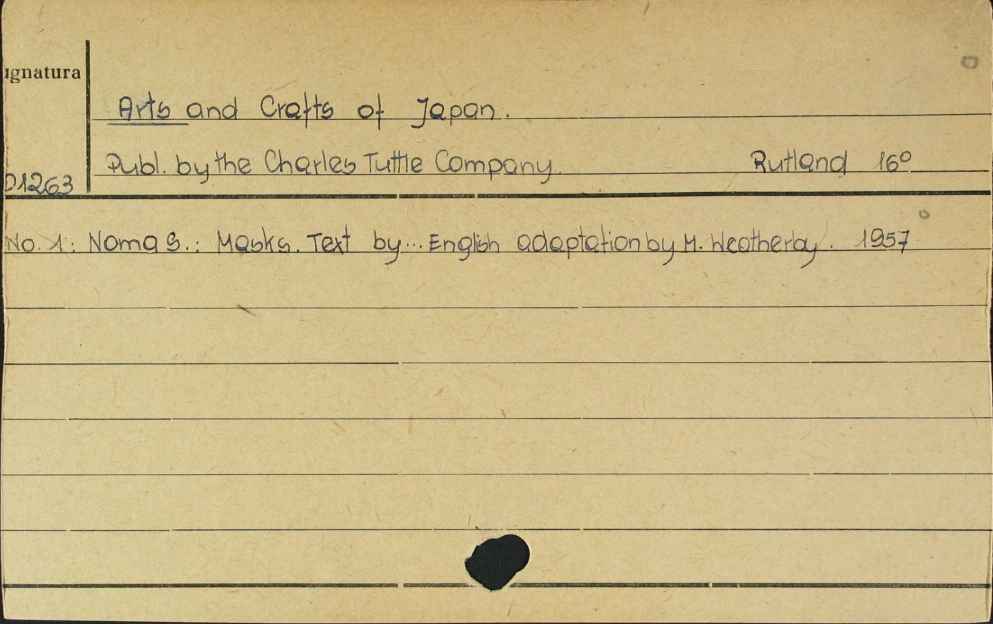 ignatura
Arts and Crafts of Japan.
Publ. by the Charles Tuttle Company. Rutland 16°
D1263
No. 1: Noma S.: Masks. Text by... English adaptation by M. Weatherby. 1957